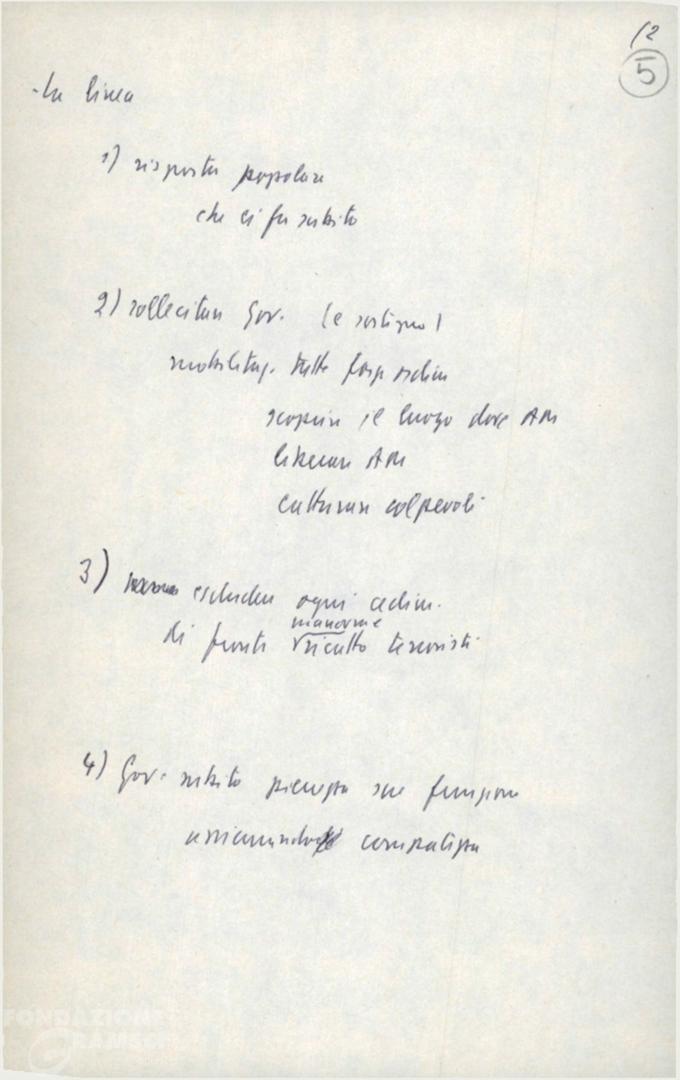 12
5
- La linea
1) risposta popolare
che ci fu subito
2) sollecitare Gov. (e sostegno)
mobilitaz. tutte forze ordine
scoprire il luogo dove AM
liberare AM
catturare colpevoli
3) escludere ogni cedim.
manovre
di fronte ricatto terroristi
4) Gov. subito pienezza sue funzioni
assicurando compattezza
FONDAZIONE
GRAMSCI